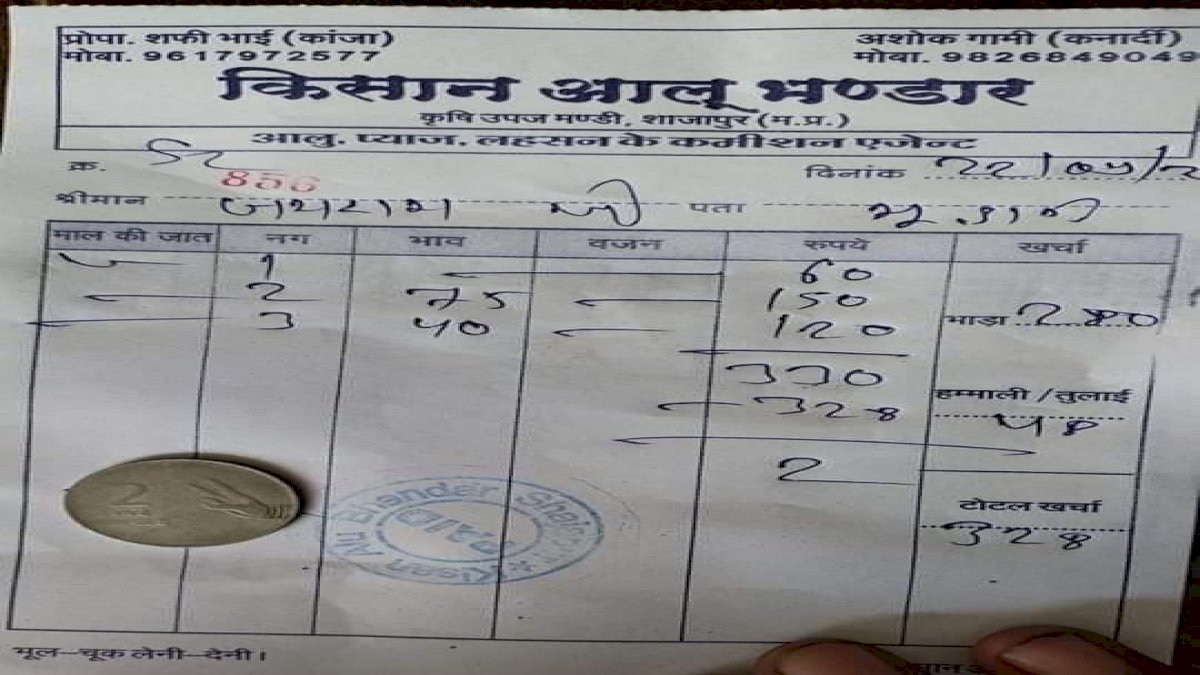 प्रोपा. शफी भाई (कांजा) अशोक गामी (कनार्दी)
मोबा. 9617972577 मोबा. 9826849049
किसान आलू भण्डार
कृषि उपज मण्डी, शाजापुर (म.प्र.)
आलु, प्याज, लहसन के कमीशन एजेन्ट
क्र. 856 दिनांक 22/09/2
श्रीमान जयराम जी पता
माल की जात नग भाव वजन रुपये खर्चा
1 60
2 75 150
3 40 120 भाड़ा 280
330
328 हम्माली / तुलाई
48
2
टोटल खर्चा
328
2
Kisan Alu Bhandar
PAID
भूल-चूक लेनी-देनी।